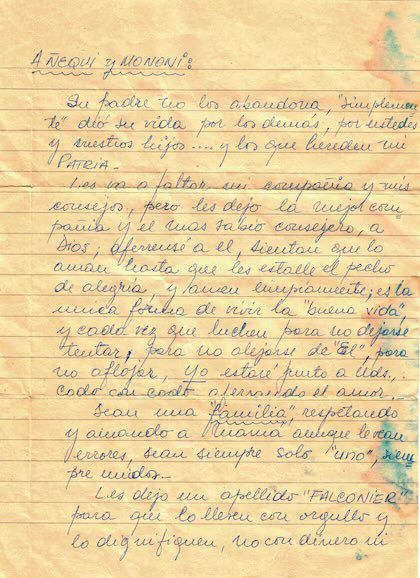 AÑEQUI y MONONI:
Su padre no los abandona, "simplemen
te" dió su vida por los demás, por ustedes
y vuestros hijos.... y los que hereden mi
PATRIA.-
Les va a faltar mi compañia y mis
consejos, pero les dejo la mejor com
pañia y el mas sabio consejero, a
Dios; aferrense a el, sientan que lo
aman hasta que les estalle el pecho
de alegria, y amen limpiamente; es la
unica forma de vivir la "buena vida",
y cada vez que luchen para no dejarse
tentar, para no alejarse de "El", para
no aflojar, yo estaré junto a Uds.,
codo con codo aferrando el amor.
Sean una "familia", respetando
y amando a mamá aunque le vean
errores, sean siempre solo "uno", siem
pre unidos.-
Les dejo un apellido "FALCONIER"
para que lo lleven con orgullo y
lo dignifiquen, no con dinero ni